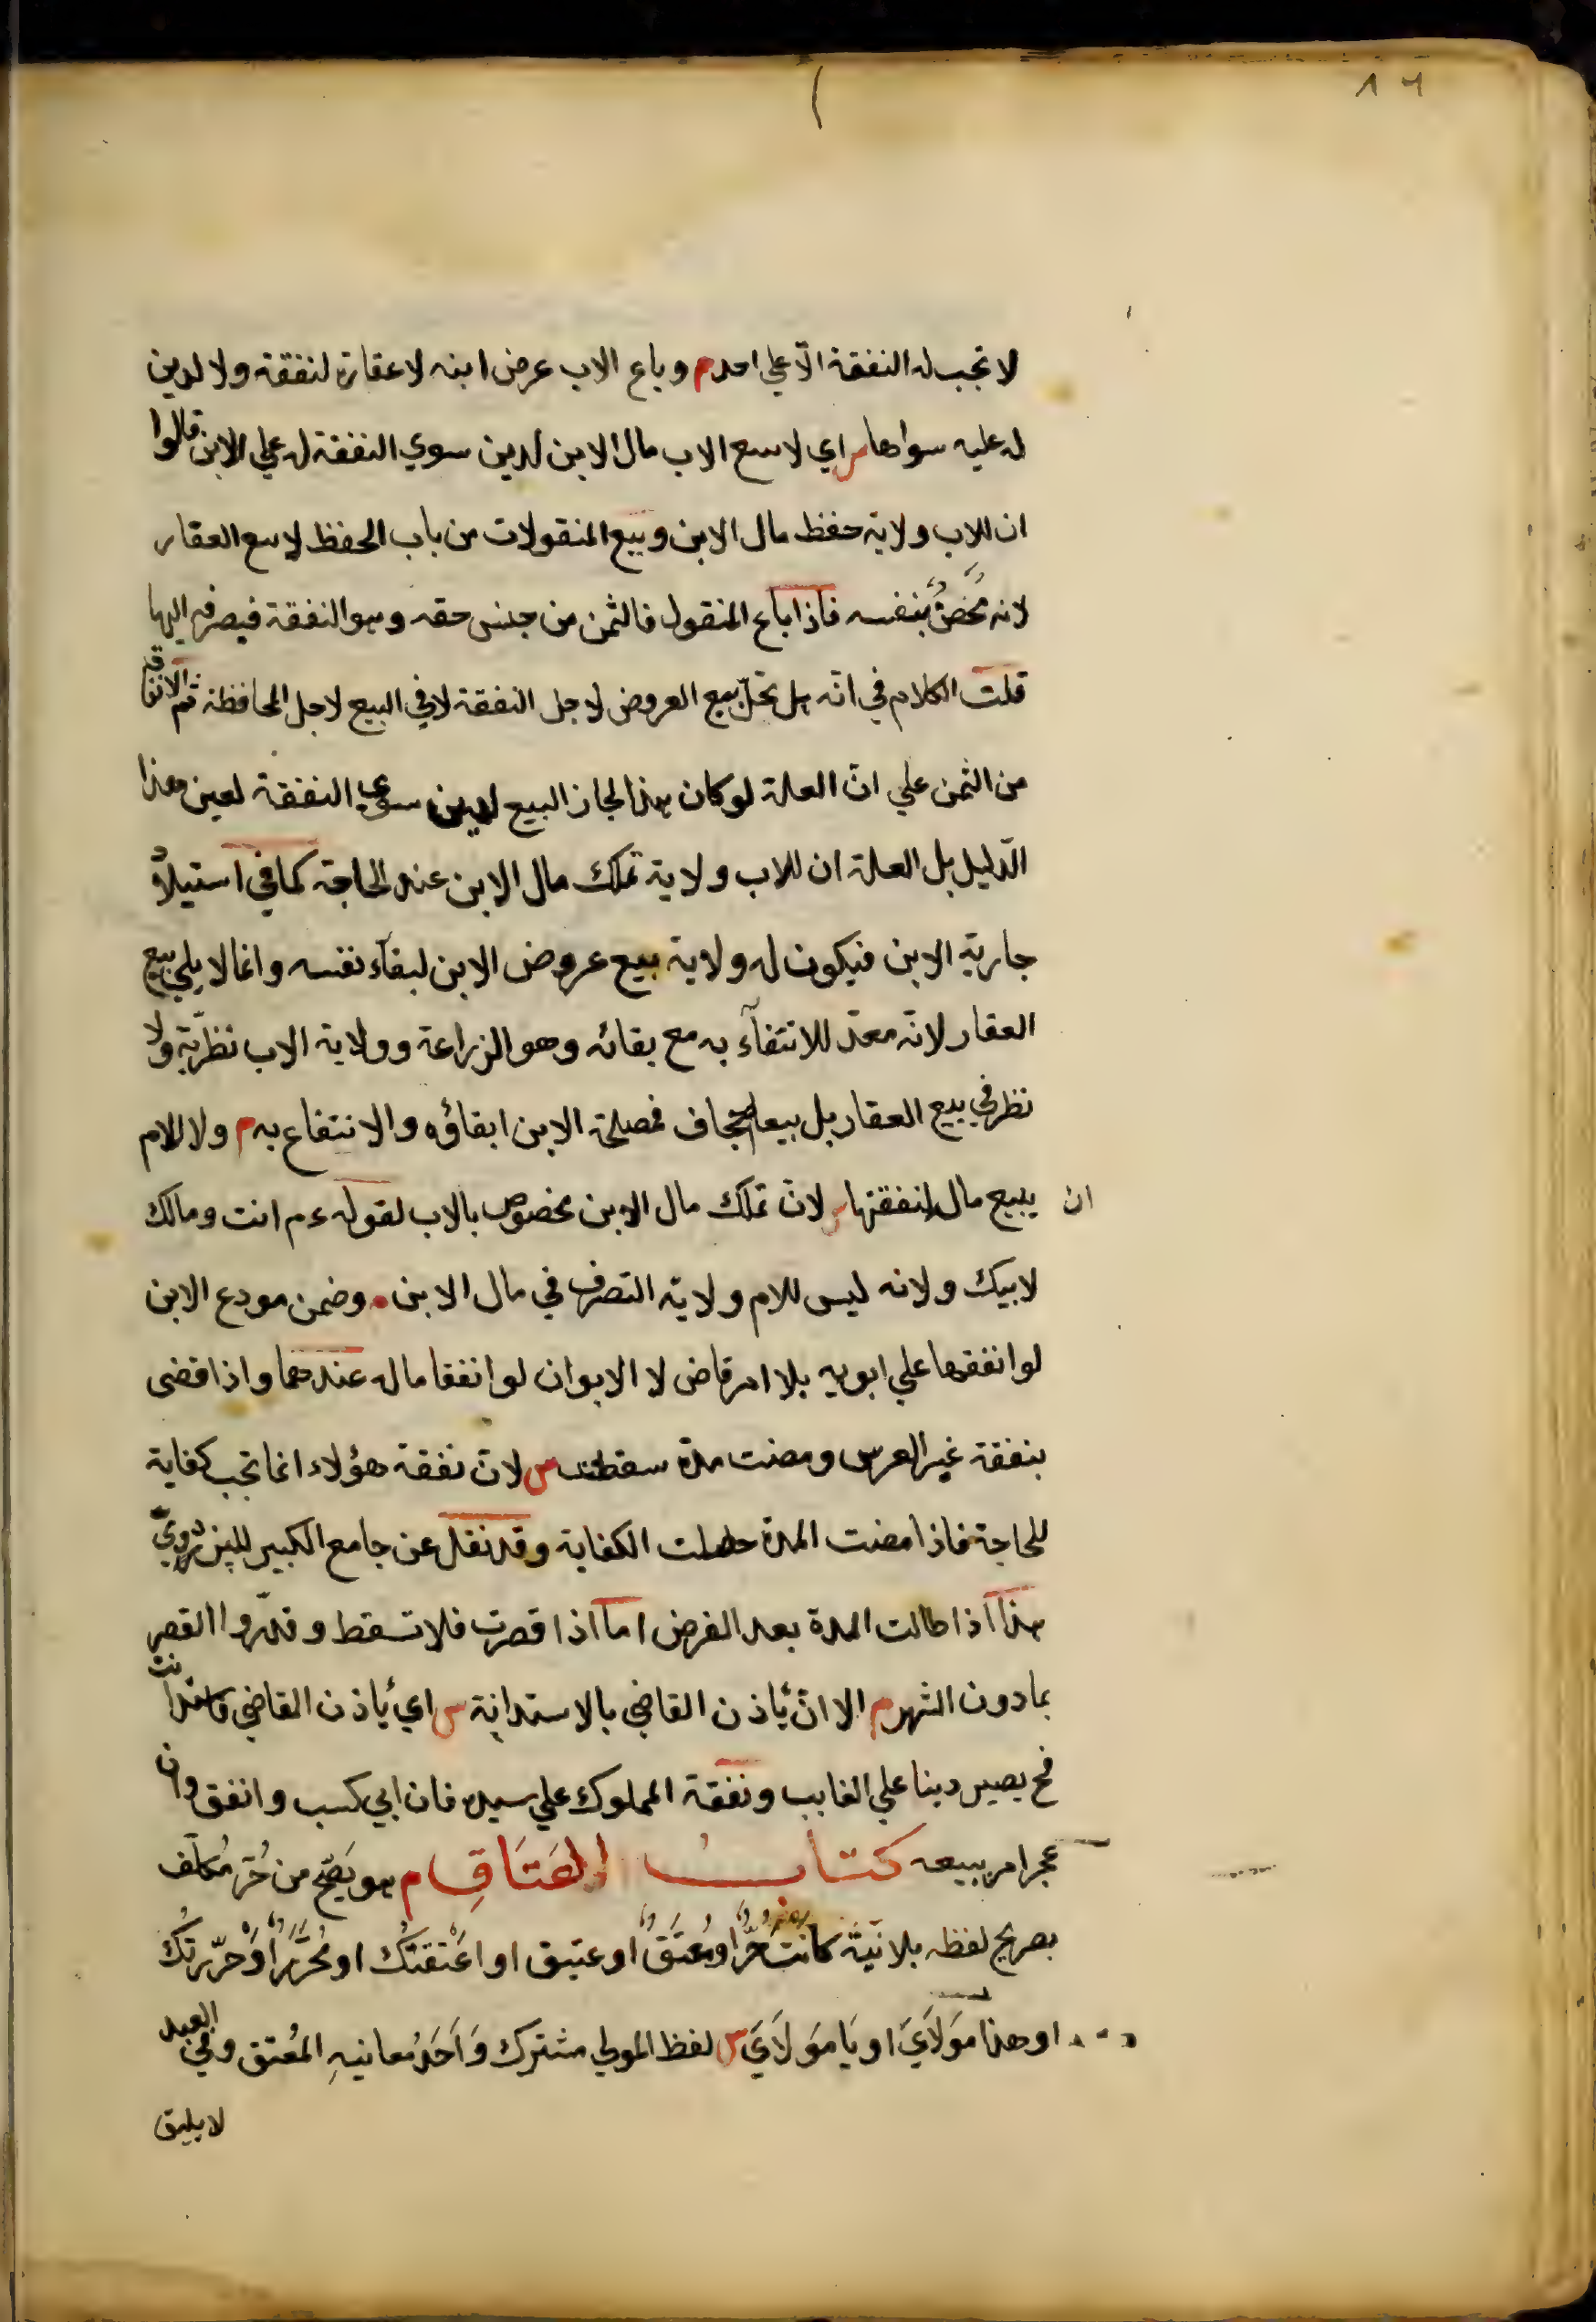 ٨٦
لا تجب له النفقة الّا علي احد م وباع الاب عرض ابنه لا عقاره لنفقة ولا لدين
له عليه سواها س اي لا يبيع الاب مال الابن لدين سوي النفقة له علي الابن قالوا
ان للاب ولاية حفظ مال الابن وبيع المنقولات من باب الحفظ لا بيع العقار
لانه مُحصّنٌ بنفسه فاذا باع المنقول فالثمن من جنس حقه وهو النفقة فيصرفه اليها
قلت الكلام في انّه هل تحلّ بيع العروض لاجل النفقة لا في البيع لاجل المحافظة ثم الانفاق
من الثمن علي انّ العلة لو كان هذا لجاز البيع لدين سوي النفقة لعين هذا
الدّليل بل العلة ان للاب ولاية تملك مال الابن عند الحاجة كما في استيلاد
جارية الابن فيكون له ولاية بيع عروض الابن لبقآء نفسه وانما لا يلي بيع
العقار لانّه معدّ للانتفآع به مع بقائه وهو الزراعة وولاية الاب نظريّة ولا
نظر في بيع العقار بل بيعه اجحاف فمصلحة الابن ابقاؤه والانتفاع به م ولا للام
ان يبيع مال لنفقتها س لانّ تملك مال الابن مخصوص بالاب لقوله ءم انت ومالك
لابيك ولانه ليس للام ولاية التصرف في مال الابن • وضمن مودع الابن
لو انفقها علي ابويه بلا امر قاض لا الابوان لو انفقا ماله عندهما واذا قضى
بنفقة غير العرس ومضت مدة سقطت س لانّ نفقة هؤلاء انما تجب كفاية
للحاجة فاذا مضت المدة حصلت الكفاية وقد نقل عن جامع الكبير للبزدويّ
هذا اذا طالت المدة بعد الفرض اما اذا قصرت فلا تسقط وقدّروا القصر
بما دون الشهر م الا انّ يأذن القاضي بالاستدانة س اي يأذن القاضي فاستدانت
فح يصير دينا علي الغايب ونفقة المملوك علي سيده فان ابي كسب وانفق وان
عجز امر ببيعه كتابُ العَتَاقِ م هو يَصّح من حُرّ مُكلّف
بصريح لفظه بلا نيّة كانتَ حُرّ او مُعتَقٌ او عتيق او اعْتقتُك او مُحَرّر او حرّرتُك
او هذا مَولَايَ او يَا مَولَايَ س لفظ المولي مشترك وَاَحَدُ معانيهِ المُعتق وفي العبد
لا يليق